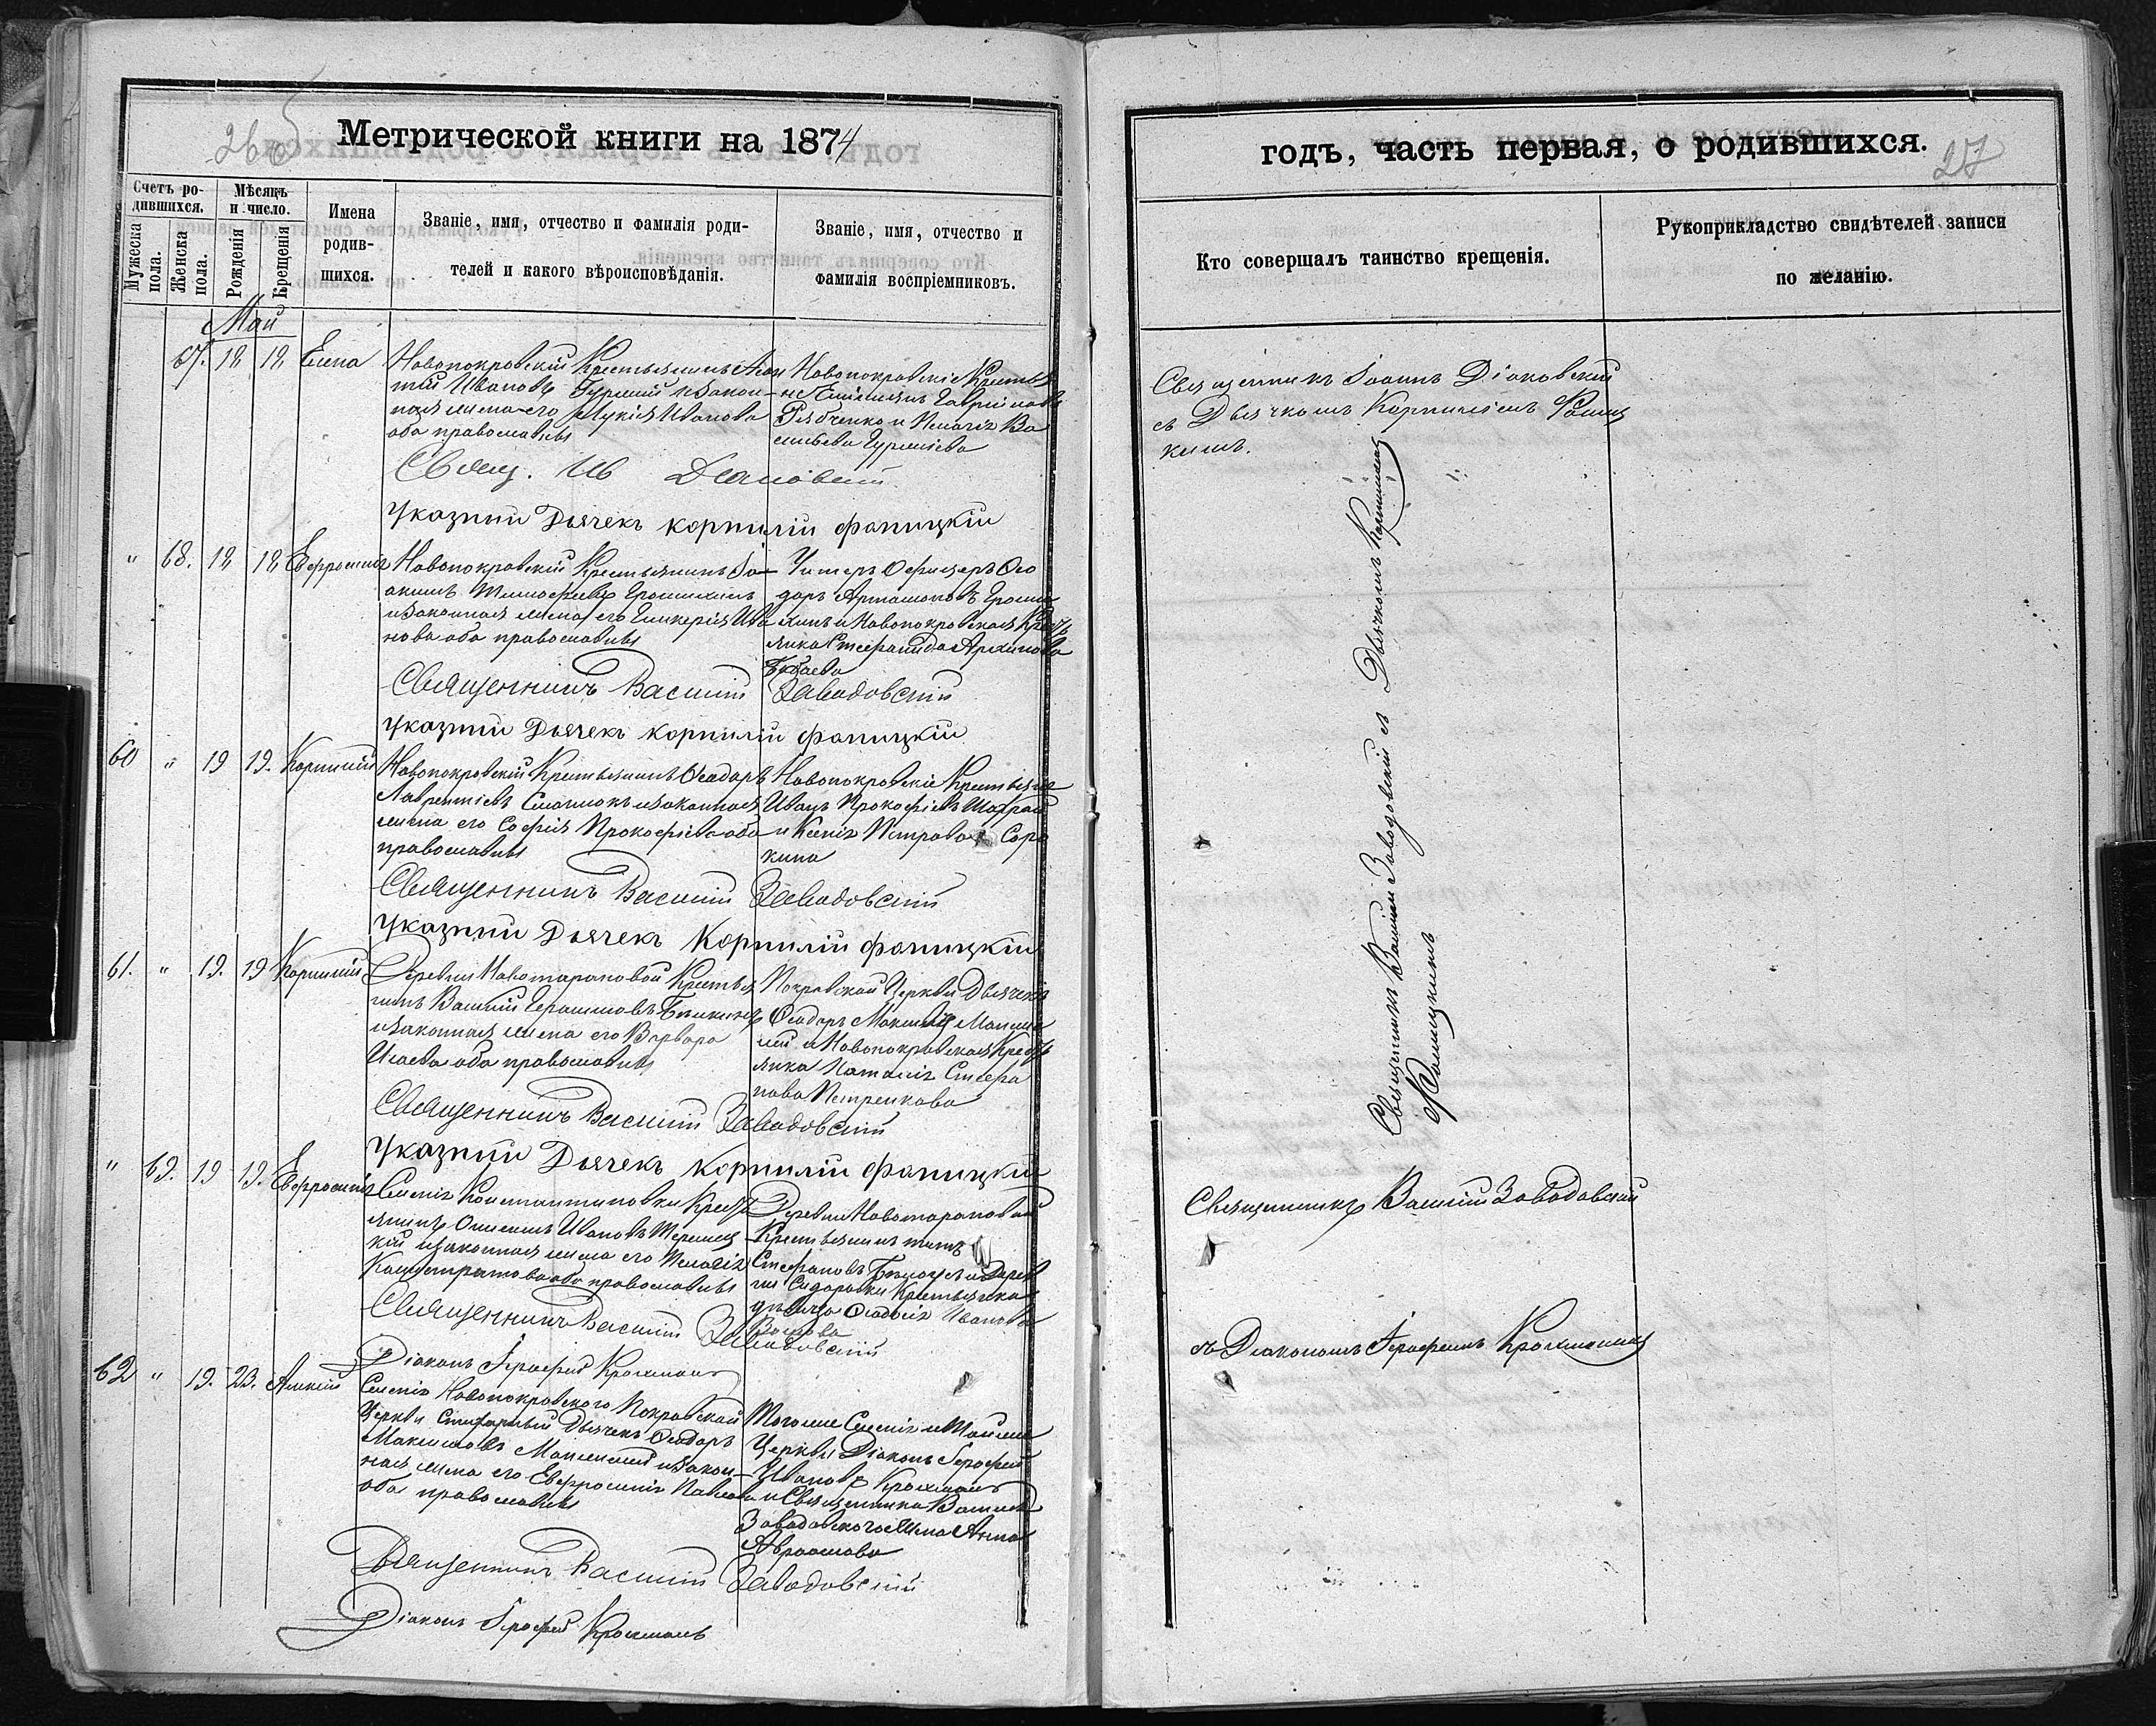 26 об
Метрической книги на 1874
Счетъ ро-
дившихся.
Мѣсяцъ
и число.
Мужеска
пола.
Женска
пола.
Рожденія
Крещенія
Имена
родив-
шихся.
Званіе, имя, отчество и фамилія роди-
телей и какого вѣроисповѣданія.
Званіе, имя, отчество и
фамилія воспріемниковъ.
Май
67. 18 18 Елена
Новопокровскій Крестьянинъ
Ивановъ и закон-
ная жена его Лукія Иванова
оба православны
Новопокровскіе Крестья
не Гавриловъ
Рябченко и Пелагія Ва
сильева
Свящ. Ів Діаковскій
Указный Дьячекъ Корнилій Фаницкій
" 68. 18 18 Евфросинія
Новопокровскій Крестьянинъ Іо-
акимъ Тимофеевъ Ерошкинъ
и законная жена его Гликерія Ива
нова оба православны
Унтеръ Офицеръ Ѳео
доръ Ерош
кинъ и Новопокровская Кресть
янка Стефанида Архипова
Священникъ Василій Заводовскій
Указный Дьячекъ Корнилій Фаницкій
60 " 19 19. Корнилій
Новопокровскій Крестьянинъ Ѳеодоръ
Лаврентіевъ и законная
жена его Софія Прокофіева оба
православны
Новопокровскіе Крестьяне
Иванъ Прокофіевъ
и Ксенія Петрова Соро
кина
Священникъ Василій Заводовскій
Указный Дьячекъ Корнилій Фаницкій
61. " 19. 19 Корнилій
Деревни Новотарановой Крестья
нинъ Василій Герасимовъ
и законная жена его Варвара
Исаева оба православны
Покровской Церкви Дьячекъ
Ѳеодоръ Максимовъ
и Новопокровская Кресть
янка Наталія Стефа
нова Петренкова
Священникъ Василій Заводовскій
Указный Дьячекъ Корнилій Фаницкій
" 69. 19 19. Евфросинія
Селенія Константиновки Кресть
янинъ Ивановъ
кій и законная жена его Пелагія
оба православны
Деревни Новотарановой
Крестьянинъ Титъ
Стефановъ и Дерев
ни Сидоровки Крестьянка
дѣвица Ѳеодосія Иванова
Священникъ Василій Заводовскій
Діаконъ Іероѳей Крохмаль
62 " 19. 23. Алексій
Селенія Новопокровского Покровской
Церкви Дьячекъ Ѳеодоръ
Максимовъ и закон-
ная жена его Евфросинія Павлова
оба православны
Того же Селенія и той же
Церкви Діаконъ Іероѳей
Ивановъ Крохмаль
и Священника Василія
Заводовского жена Анна
Авраамова
Священникъ Василій Заводовскій
Діаконъ Іероѳей Крохмаль
годъ, часть первая, о родившихся.
27
Кто совершалъ таинство крещенія.
Рукоприкладство свидѣтелей записи
по желанію.
Священникъ Іоаннъ Діаковскій
съ Дьячкомъ Корниліемъ Фаниц
кимъ.
Священникъ Василій Заводовскій съ Дьячкомъ Корниліемъ
Фаницкимъ
Священникъ Василій Заводовскій
съ Діакономъ Іероѳеемъ Крохмалемъ